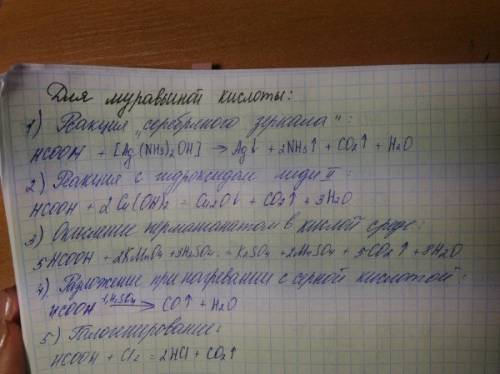 Для муравьиной кислоты:
1) Реакция „серебряного зеркала":
HCOOH + [Ag(NH3)2OH] → Ag↓ + 2NH3↑ + CO2↑ + H2O
2) Реакция с гидроксидом меди II
HCOOH + 2Cu(OH)2 = Cu2O↓ + CO2↑ + 3H2O
3) Окисление перманганатом в кислой среде:
5HCOOH + 2KMnO4 + 3H2SO4 = K2SO4 + 2MnSO4 + 5CO2↑ + 8H2O
4) Разложение при нагревании с серной кислотой:
HCOOH t, H2SO4 → CO↑ + H2O
5) Галогенирование:
HCOOH + Cl2 = 2HCl + CO2↑